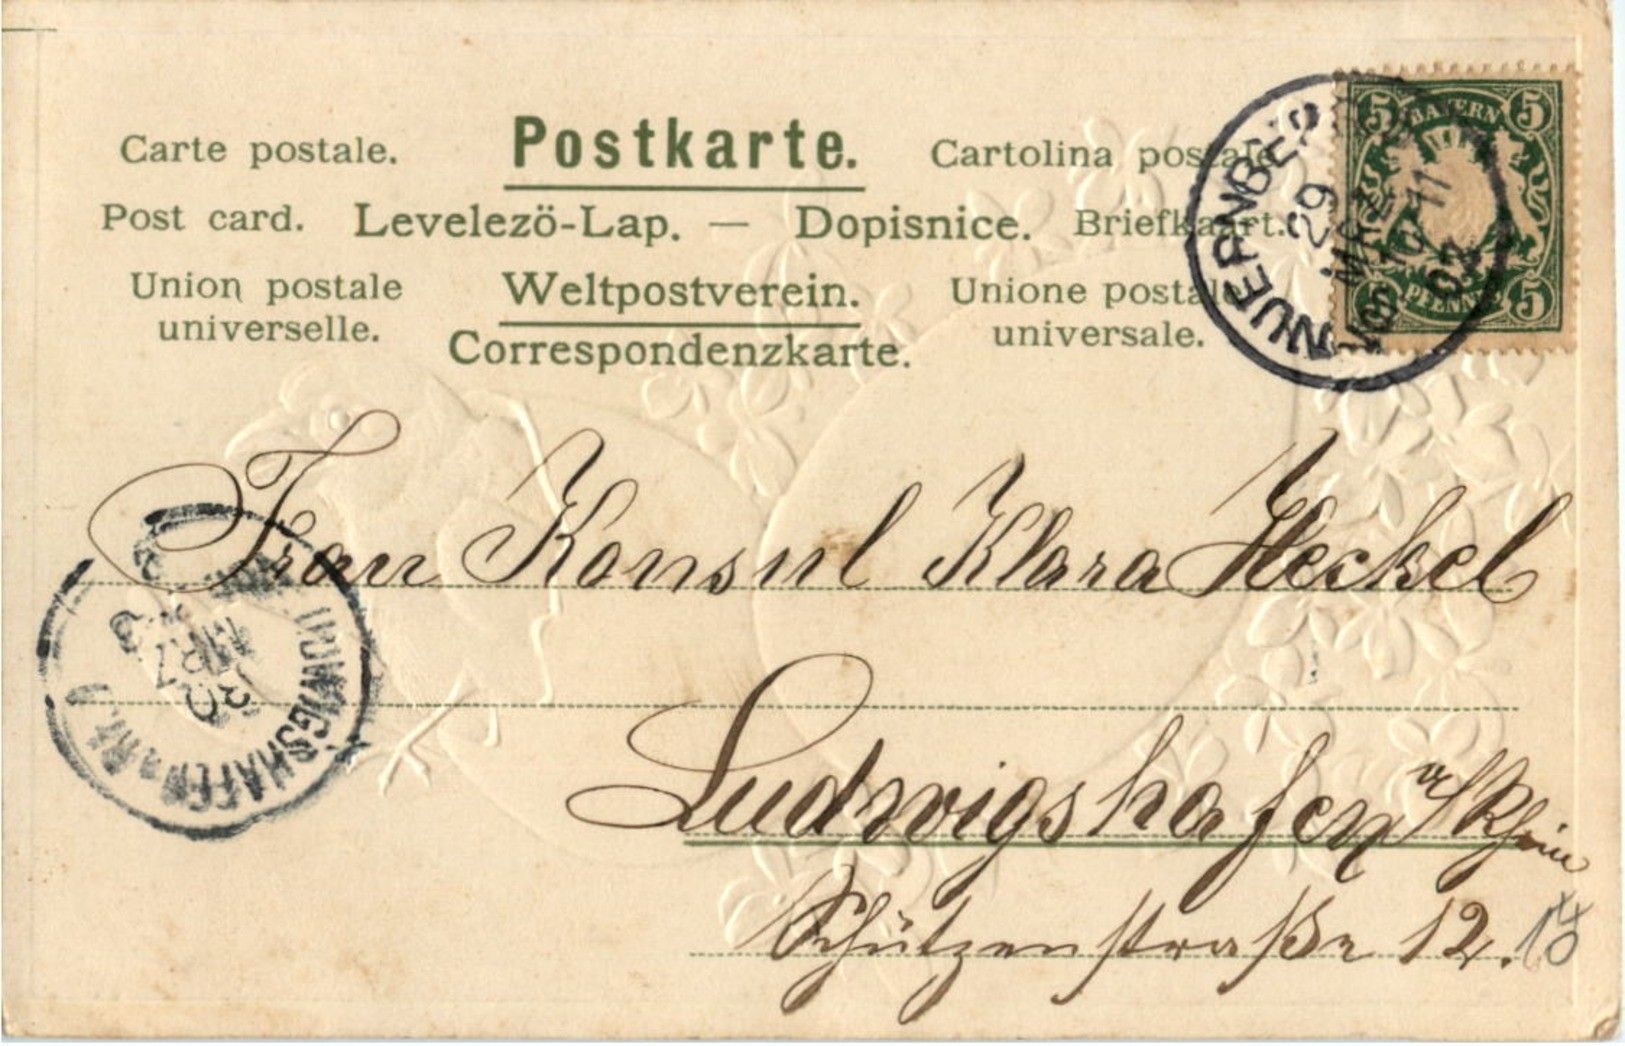 Carte postale. Postkarte. Cartolina postale
Post card. Levelezö-Lap. — Dopisnice. Briefkaart.
Union postale universelle. Weltpostverein. Unione postale universale.
Correspondenzkarte.
5 BAYERN 5
5 PFENNIG 5
NUERNBERG
29
MRZ
10-11
03
Frau Konsul Klara Heckel
LUDWIGSHAFEN a. RH.
30
MRZ
Ludwigshafen a/Rhein
Schützenstraße 12.